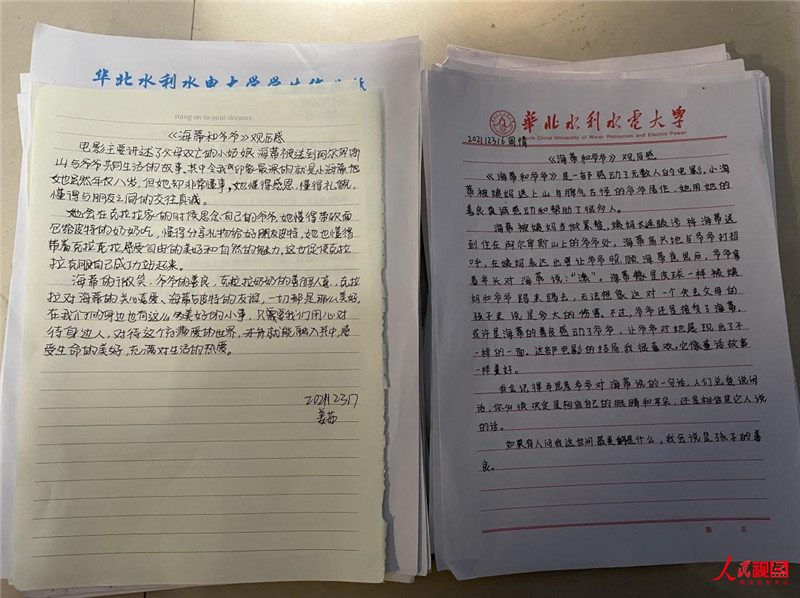 华北水利水电大学学生
Hang on to your dreams
《海蒂和爷爷》观后感
电影主要讲述了父母双亡的小姑娘海蒂被送到阿尔卑斯
山与爷爷共同生活的故事。其中令我印象最深的就是小海蒂,她
她虽然年仅八岁,但她却非常懂事。她懂得感恩,懂得礼貌,
懂得与朋友之间的交往真诚。
她会在克拉拉家的时候思念自己的爷爷,她懂得带软面
包给彼特的奶奶吃,懂得分享礼物给好朋友彼特,她也懂得
带着克拉克拉感受自由的美好和自然的魅力,这也促使克拉
拉克服自己成功站起来。
海蒂的微笑,爷爷的善良,克拉拉奶奶的善解人意,克拉
拉对海蒂的关心爱护、海蒂与彼特的友谊,一切都是那么美好,
在我们的身边也有这么的美好的小事,只需要我们用心对
待身边人,对待这个充满爱的世界,本身就能融入其中,感
受生命的美好,充满对生活的热爱。
202112317
姜茹
华北水利水电大学
North China University of Water Resources and Electric Power
202112316 周情
《海蒂和爷爷》观后感
《海蒂和爷爷》是一部感动了无数人的电影,小海
蒂被姨妈送上山与脾气古怪的爷爷居住,她用她的
善良真诚感动和帮助了很多人。
海蒂被姨妈当做累赘,姨妈太远路途将海蒂送
到住在阿尔卑斯山上的爷爷处,海蒂首次地与爷爷打招
呼,在姨妈表达出要让爷爷照顾海蒂意思后,爷爷拿
着斧头对海蒂说:“滚”。海蒂像是皮球一样被姨
妈和爷爷踢来踢去,无法想象这对一个失去父母的
孩子来说是多大的伤害。不过,爷爷还是接受了海蒂,
或许是海蒂的善良感动了爷爷,让爷爷对她展现出了不
一样的一面。这部电影的结局我很喜欢,它像童话故事
一样美好。
我会记得并思考爷爷对海蒂说的一句话,人们总有说闲
话,你必须决定是相信自己的眼睛和耳朵,还是相信其它人说
的话。
如果有人问我这世间最美的是什么,我会说是孩子的善
良。
第 页
人民视图